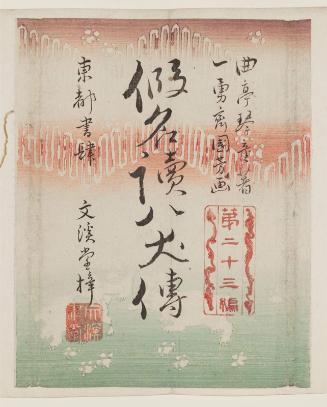 曲亭琴童著
一勇齋国芳画
第二十三編
假名讀八犬傳
東都書肆
文溪堂梓